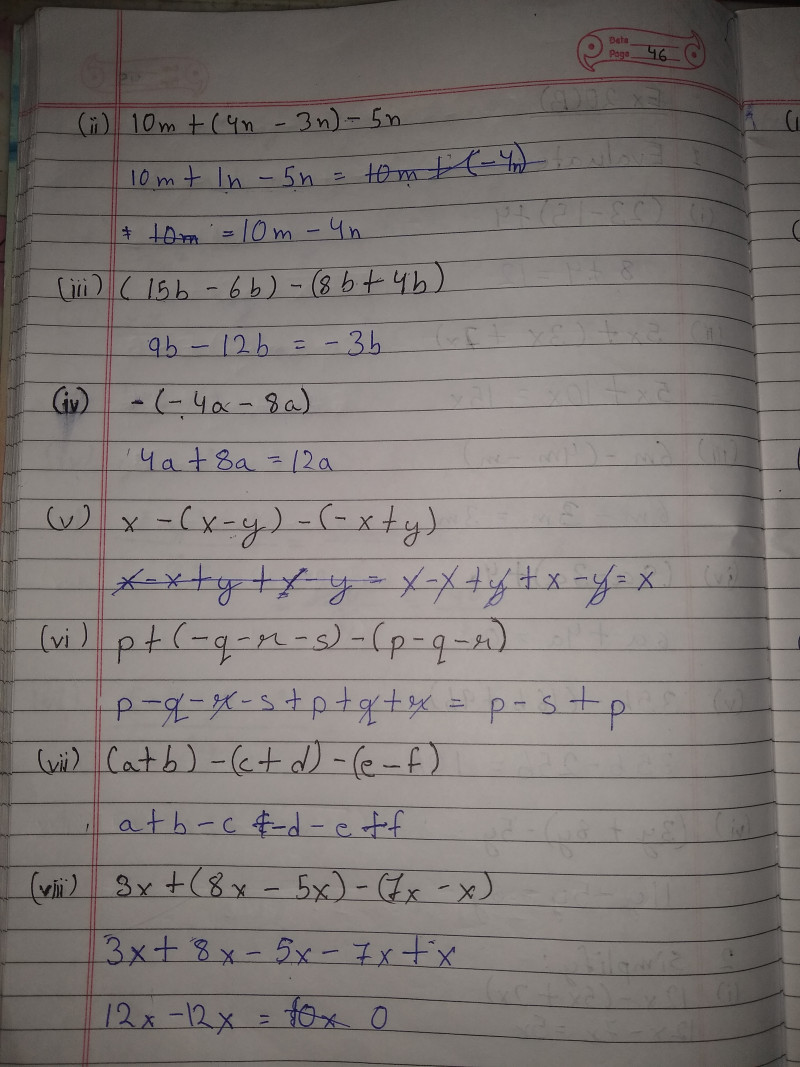 Date
Page 46
(ii) 10m + (4n - 3n) - 5n
10m + 1n - 5n = 10m + (-4n)
= 10m = 10m - 4n
(iii) (15b - 6b) - (8b + 4b)
9b - 12b = -3b
(iv) -(-4a - 8a)
4a + 8a = 12a
(v) x - (x-y) - (-x+y)
x - x + y + x - y = x - x + y + x - y = x
(vi) p + (-q - r - s) - (p - q - r)
p - q - r - s + p + q + r = p - s + p
(vii) (a+b) - (c+d) - (e-f)
a + b - c - d - e + f
(viii) 3x + (8x - 5x) - (7x - x)
3x + 8x - 5x - 7x + x
12x - 12x = 10x 0